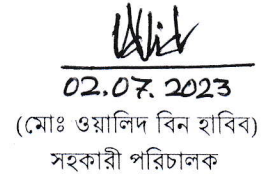 Walid
02.07.2023
(মোঃ ওয়ালিদ বিন হাবিব)
সহকারী পরিচালক